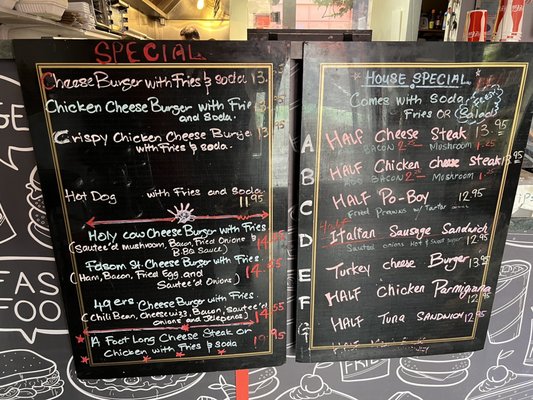 SPECIAL
Cheese Burger with Fries & soda 13.
Chicken Cheese Burger with Frie
and Soda. 13
Crispy Chicken Cheese Burge 13
with Fries & soda.
Hot Dog with Fries and Soda
11.95
Holy cow Cheese Burger with Fries
(Sautee'd mushroom, Bacon, Fried Onions & B.BQ Sauce) 14.
Folsom St. Cheese Burger with Fries
(Ham, Bacon, Fried Egg and 14.25
Sautee'd Onions)
49ers Cheese Burger with Fries
(Chili Bean, Cheese wizz, Bacon, Sautee'd
onions and Jalepenos) 14.
A Foot Long Cheese Steak or
Chicken with Fries & soda 19.
HOUSE SPECIAL
Comes with Soda
Fries OR Salad
A HALF Cheese Steak 13.95
BACON Mushroom 1.25
B HALF Chicken cheese Steak 13.95
BACON Mushroom 1.25
C HALF Po-Boy 12.95
Fried Prawns w/ Tartar
D Half Italian Sausage Sandwich
Sauteed onions Hot & Sweet pepper 12.95
E Turkey cheese Burger 13.95
F HALF Chicken Parmgiana
12.95
G HALF Tuna SANDWICH 13.95
FAS
FOO
FRIE